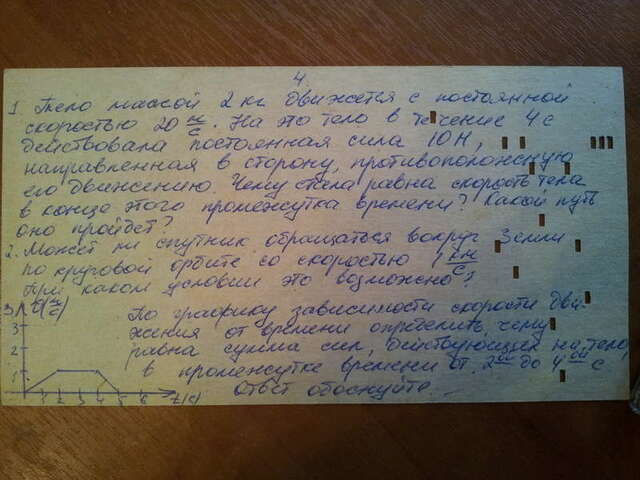 4.
1. Тело массой 2 кг движется с постоянной
скоростью 20 м/с. На это тело в течение 4 с
действовала постоянная сила 10 Н,
направленная в сторону, противоположную
его движению. Чему стала равна скорость тела
в конце этого промежутка времени? Какой путь
оно пройдет?
2. Может ли спутник обращаться вокруг Земли
по круговой орбите со скоростью 1 км/с?
При каком условии это возможно?
3. По графику зависимости скорости дви-
жения от времени определить, чему
равна сумма сил, действующий на тело,
в промежутке времени от 2ой до 4ой с
Ответ обоснуйте.
3
2
1
1 2 3 4 5 6 t(с)